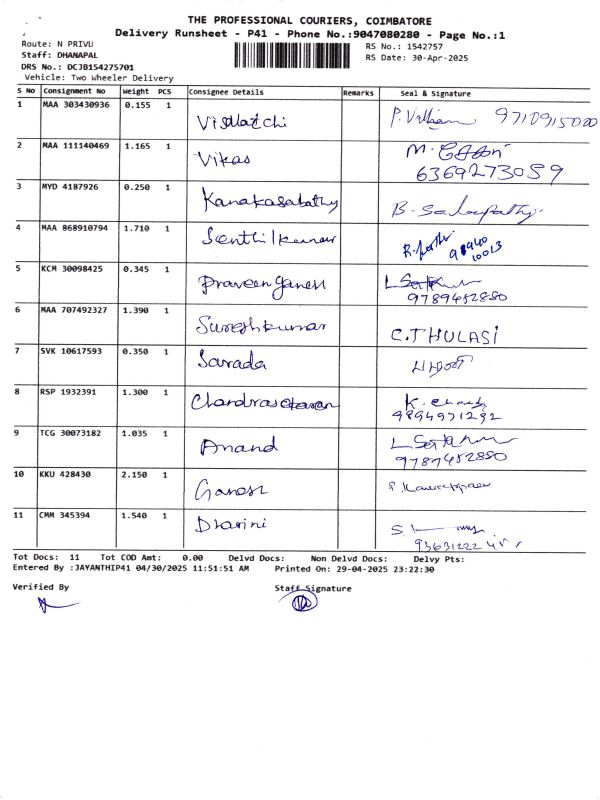 THE PROFESSIONAL COURIERS, COIMBATORE
Delivery Runsheet - P41 - Phone No.:9047080280 - Page No.:1
Route: N PRIVU
RS No.: 1542757
Staff: DHANAPAL
RS Date: 30-Apr-2025
DRS No.: DCJB154275701
Vehicle: Two Wheeler Delivery
S No Consignment No Weight PCS Consignee Details Remarks Seal & Signature
1 MAA 303430936 0.155 1 Visalatchi
2 MAA 111140469 1.165 1 Vikas M. 6369273059
3 MYD 4187926 0.250 1 Kanakasabathy B.
4 MAA 868910794 1.710 1 Senthilkumar
5 KCM 30098425 0.345 1 Praveen Ganesh 9789452880
6 MAA 707492327 1.390 1 Sureshkumar C.THULASI
7 SVK 10617593 0.350 1 Sarada
8 RSP 1932391 1.300 1 Chandrasekaran K. 9894971292
9 TCG 30073182 1.035 1 Anand 9787452880
10 KKU 428430 2.150 1 Ganesh P.
11 CMM 345394 1.540 1 Dharini S.
Tot Docs: 11 Tot COD Amt: 0.00 Delvd Docs: Non Delvd Docs: Delvy Pts:
Entered By :JAYANTHIP41 04/30/2025 11:51:51 AM Printed On: 29-04-2025 23:22:30
Verified By Staff Signature